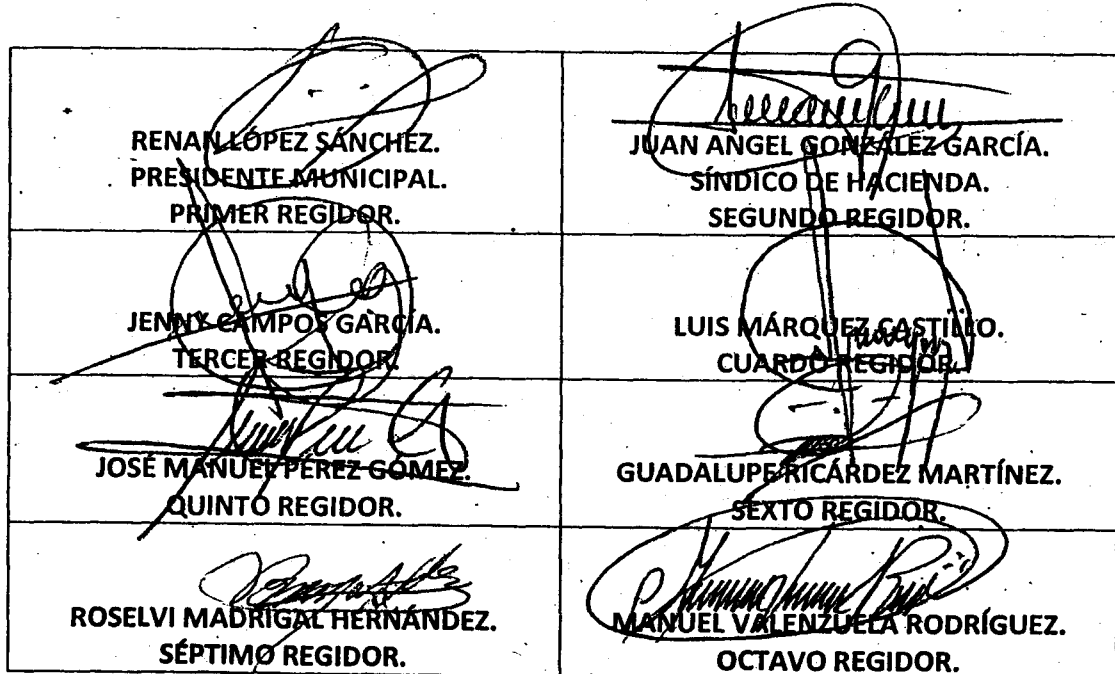 RENAN LÓPEZ SÁNCHEZ.
PRESIDENTE MUNICIPAL.
PRIMER REGIDOR.
JUAN ANGEL GONZÁLEZ GARCÍA.
SÍNDICO DE HACIENDA.
SEGUNDO REGIDOR.
JENNY CAMPOS GARCÍA.
TERCER REGIDOR.
LUIS MÁRQUEZ CASTILLO.
CUARDO REGIDOR.
JOSÉ MANUEL PÉREZ GÓMEZ.
QUINTO REGIDOR.
GUADALUPE RICÁRDEZ MARTÍNEZ.
SEXTO REGIDOR.
ROSELVI MADRIGAL HERNÁNDEZ.
SÉPTIMO REGIDOR.
MANUEL VALENZUELA RODRÍGUEZ.
OCTAVO REGIDOR.